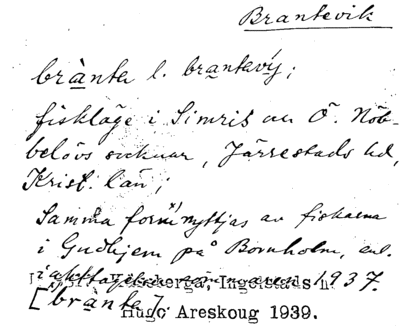 Brantevik
brànta l. brantavíj;
fiskläge i Simris och Ö. Nöb-
belövs socknar, Järrestads hd,
Krist. län;
Samma form nyttjas av fiskarna
i Gudhjem på Bornholm, enl.
1937.
[brànta].
Hugo Areskoug 1939.